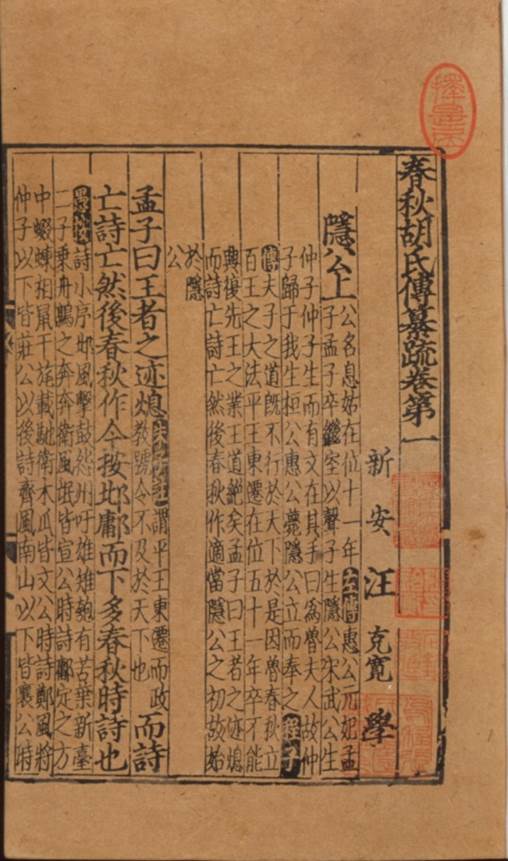 春秋胡氏傳纂疏卷第一
新安汪克寬學
隱公上
公名息姑在位十一年左傳惠公元妃孟
子孟子卒繼室以聲子生隱公宋武公生
仲子仲子生而有文在其手曰為魯夫人故仲
子歸于我生桓公惠公薨隱公立而奉之程子
傳夫子之道既不行於天下於是因魯春秋立
百王之大法平王東遷在位五十一年卒不能
興復先王之業王道絕矣孟子曰王者之迹熄
而詩亡詩亡然後春秋作適當隱公之初故始
於隱
公
孟子曰王者之迹熄朱子註謂平王東遷而政
教號令不及於天下也而詩
亡詩亡然後春秋作今按邶鄘而下多春秋時詩也
愚按詩小序邶風擊鼓州吁雄雉匏有苦葉新臺
二子乘舟鶉之奔奔衛風氓皆宣公時詩鄘定之方
中蝃蝀相鼠干旄載馳衛木瓜皆文公時詩鄭風將
仲子以下皆莊公以後詩齊風南山以下皆襄公時